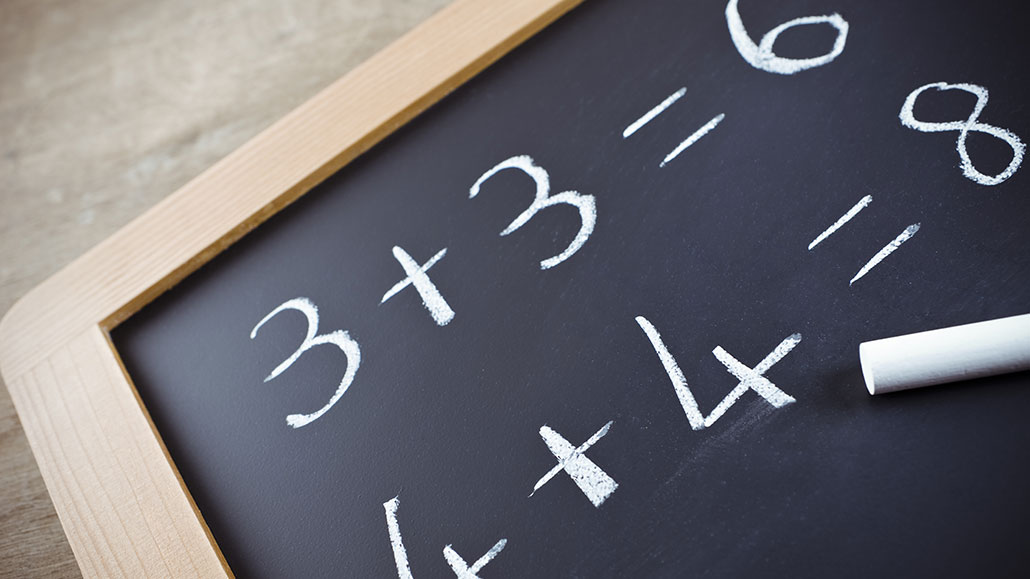 3 + 3 = 6
4 + 4 = 8